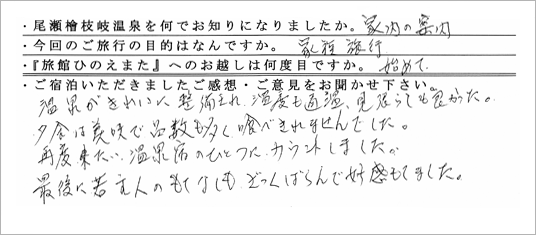 ・尾瀬檜枝岐温泉を何でお知りになりましたか。家内の案内
・今回のご旅行の目的はなんですか。家族旅行
・『旅館ひのえまた』へのお越しは何度目ですか。始めて
・ご宿泊いただきましたご感想・ご意見をお聞かせ下さい。
温泉がきれいに整備され、温度も適温、見はらしも良かった。
夕食は美味で品数も多く喰べきれませんでした。
再度来たい温泉宿のひとつにカウントしました。
最後に若主人のもてなしも、ざっくばらんで好感もてました。